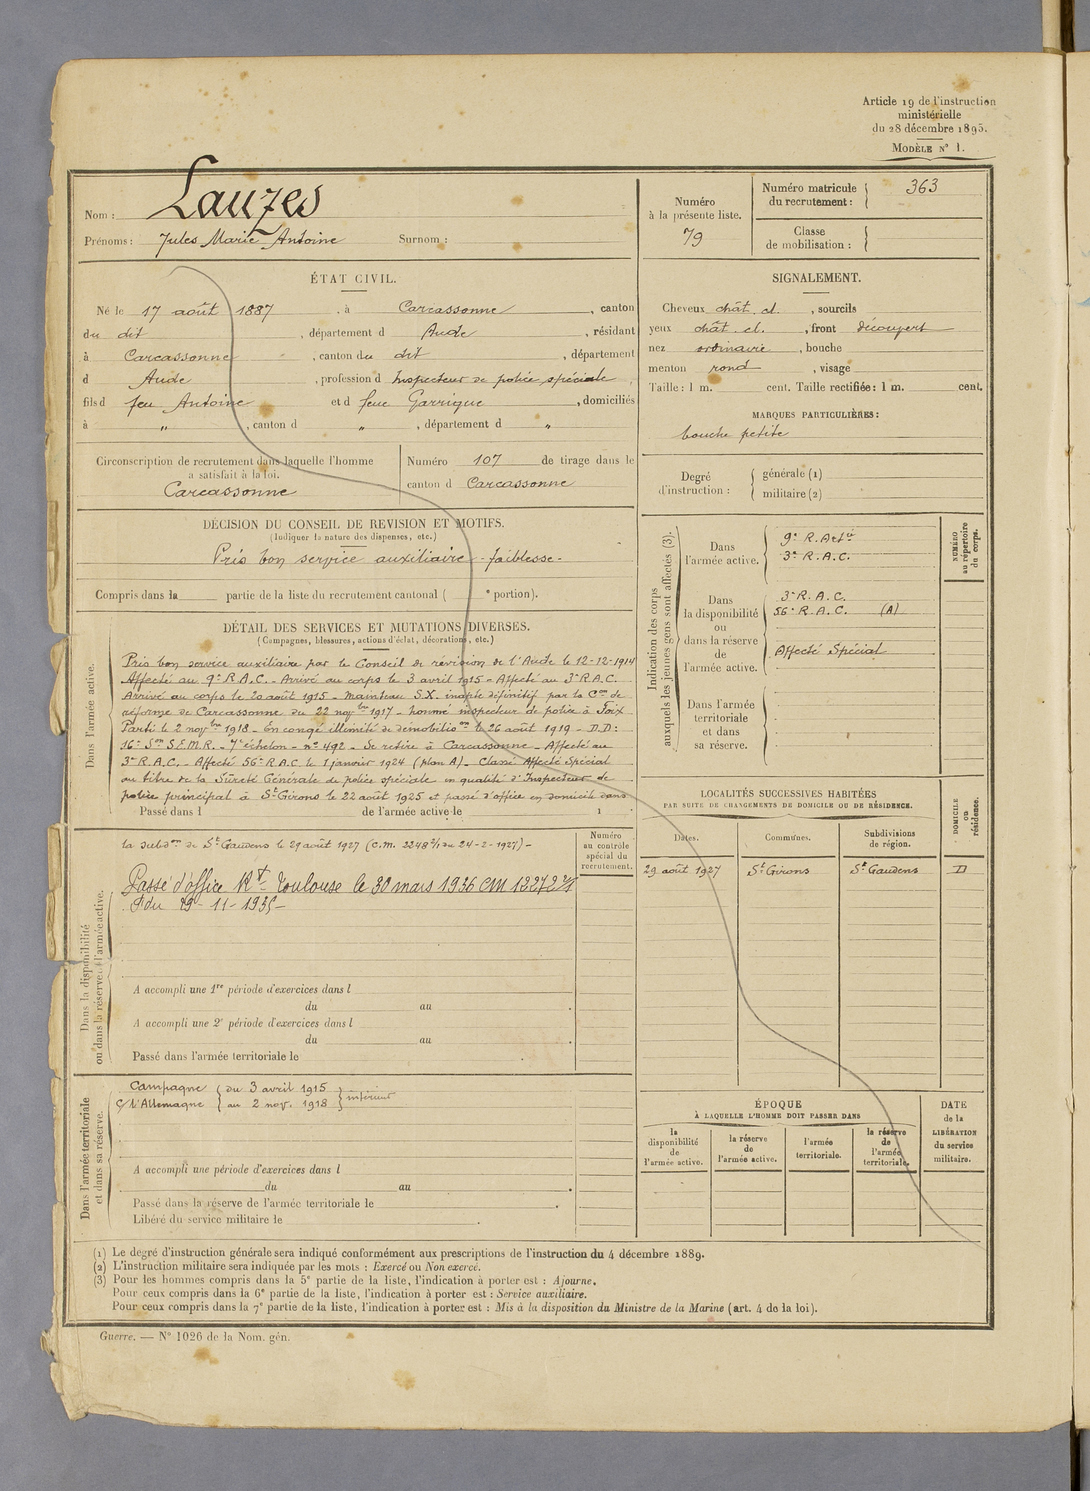 Article 19 de l'instruction
ministérielle
du 28 décembre 1895.
MODÈLE N° 1.
Nom : Lauzes
Prénoms : Jules Marie Antoine Surnom :
Numéro
à la présente liste.
79
Numéro matricule
du recrutement : 363
Classe
de mobilisation :
ÉTAT CIVIL.
Né le 17 août 1887, à Carcassonne, canton
du dit, département d Aude, résidant
à Carcassonne, canton du dit, département
d Aude, profession d Inspecteur de police spéciale
fils d feu Antoine et d feue Garrigue, domiciliés
à ", canton d ", département d "
SIGNALEMENT.
Cheveux chât. cl., sourcils
yeux chât. cl., front découvert
nez ordinaire, bouche
menton rond, visage
Taille : 1 m. cent. Taille rectifiée : 1 m. cent.
MARQUES PARTICULIÈRES :
bouche petite
Circonscription de recrutement dans laquelle l'homme
a satisfait à la loi.
Carcassonne
Numéro 107 de tirage dans le
canton d Carcassonne
Degré
d'instruction :
générale (1)
militaire (2)
DÉCISION DU CONSEIL DE REVISION ET MOTIFS.
(Indiquer la nature des dispenses, etc.)
Pris bon service auxiliaire - faiblesse -
Compris dans la partie de la liste du recrutement cantonal ( e portion).
Indication des corps
auxquels les jeunes gens sont affectés (3).
Dans
l'armée active.
9e R. Artie
3e R.A.C.
Dans
la disponibilité
ou
dans la réserve
de
l'armée active.
3e R.A.C.
56e R.A.C. (A)
Affecté Spécial
Dans l'armée
territoriale
et dans
sa réserve.
NUMÉRO
au répertoire
du corps.
DÉTAIL DES SERVICES ET MUTATIONS DIVERSES.
(Campagnes, blessures, actions d'éclat, décorations, etc.)
Dans l'armée active.
Pris bon service auxiliaire par le Conseil de révision de l'Aude le 12-12-1914
Affecté au 9e R.A.C. - Arrivé au corps le 3 avril 1915 - Affecté au 3e R.A.C.
Arrivé au corps le 20 août 1915 - Maintenu S.X. inapte définitif par la Con de
réforme de Carcassonne du 22 novbre 1917 - nommé inspecteur de police à Foix
Parti le 2 novbre 1918 - En congé illimité de démobilisation le 26 août 1919 - D.D:
16e Son S.E.M.R. - 7e échelon - n° 492 - Se retire à Carcassonne - Affecté au
3e R.A.C. - Affecté 56e R.A.C. le 1 janvier 1924 (plan A) - Classé Affecté Spécial
au titre de la Sûreté Générale de police spéciale en qualité d'Inspecteur de
police principal à St Girons le 22 août 1925 et passé d'office en domicile dans
Passé dans l de l'armée active le 1
Dans la disponibilité
ou dans la réserve de l'armée active.
la subdon de St Gaudens le 29 août 1927 (C.M. 2248 2/1 du 24-2-1927) -
Passé d'office Rt Toulouse le 30 mars 1936 CM 13272 2/1
du 29-11-1935 -
Numéro
au contrôle
spécial du
recrutement.
A accompli une 1re période d'exercices dans l
du au
A accompli une 2e période d'exercices dans l
du au
Passé dans l'armée territoriale le
LOCALITÉS SUCCESSIVES HABITÉES
PAR SUITE DE CHANGEMENTS DE DOMICILE OU DE RÉSIDENCE.
Dates. Communes. Subdivisions
de région.
DOMICILE
ou
résidence.
29 août 1927 St Girons St Gaudens D
Dans l'armée territoriale
et dans sa réserve.
Campagne du 3 avril 1915
C/ l'Allemagne au 2 nov. 1918 intérieur
A accompli une période d'exercices dans l
du au
Passé dans la réserve de l'armée territoriale le
Libéré du service militaire le
ÉPOQUE
À LAQUELLE L'HOMME DOIT PASSER DANS
la
disponibilité
de
l'armée active.
la réserve
de
l'armée active.
l'armée
territoriale.
la réserve
de
l'armée
territoriale.
DATE
de la
LIBÉRATION
du service
militaire.
(1) Le degré d'instruction générale sera indiqué conformément aux prescriptions de l'instruction du 4 décembre 1889.
(2) L'instruction militaire sera indiquée par les mots : Exercé ou Non exercé.
(3) Pour les hommes compris dans la 5e partie de la liste, l'indication à porter est : Ajourné.
Pour ceux compris dans la 6e partie de la liste, l'indication à porter est : Service auxiliaire.
Pour ceux compris dans la 7e partie de la liste, l'indication à porter est : Mis à la disposition du Ministre de la Marine (art. 4 de la loi).
Guerre. — N° 1026 de la Nom. gén.